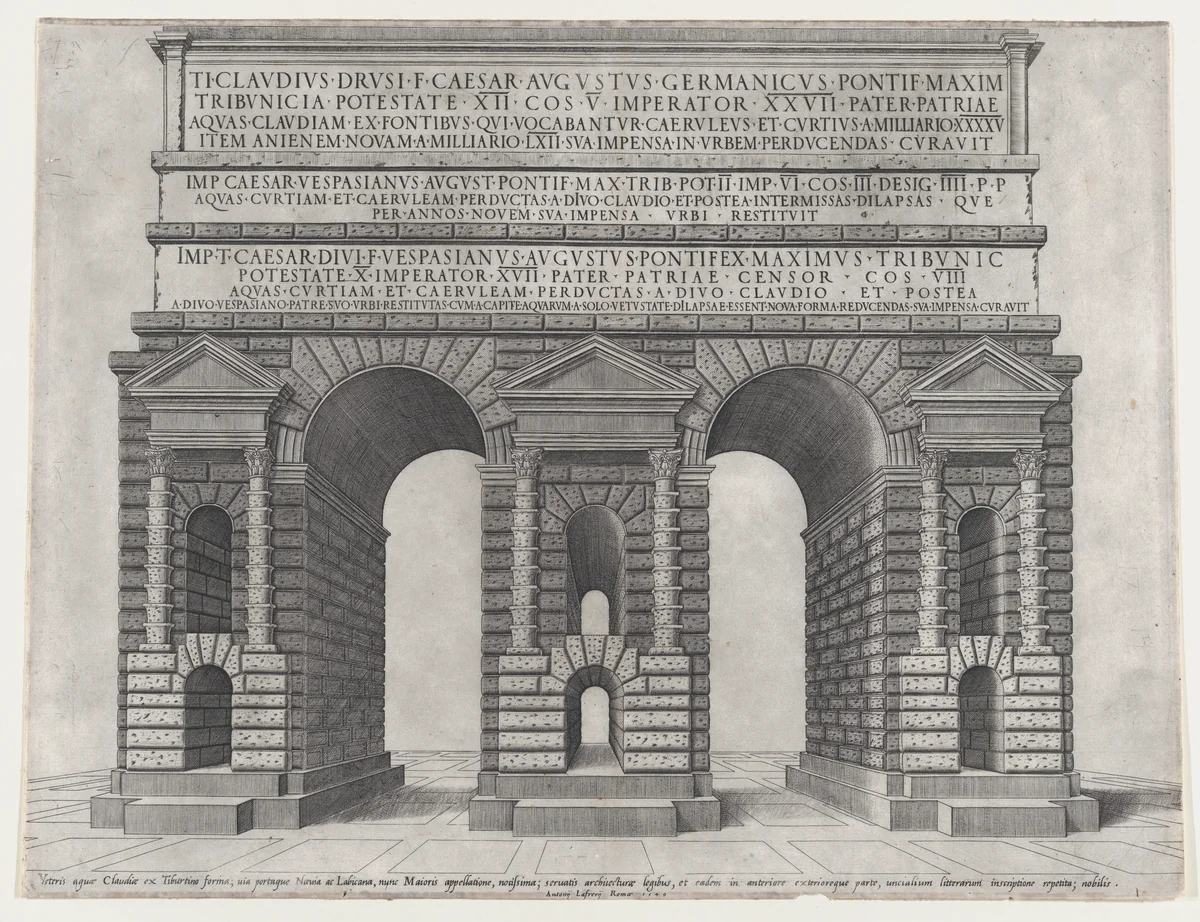 TI·CLAVDIVS·DRVSI·F·CAESAR·AVGVSTVS·GERMANICVS·PONTIF·MAXIM
TRIBVNICIA·POTESTATE·XII·COS·V·IMPERATOR·XXVII·PATER·PATRIAE
AQVAS·CLAVDIAM·EX·FONTIBVS·QVI·VOCABANTVR·CAERVLEVS·ET·CVRTIVS·A·MILLIARIO·XXXXV
ITEM ANIENEM·NOVAM·A·MILLIARIO·LXII·SVA·IMPENSA·IN·VRBEM·PERDVCENDAS·CVRAVIT
IMP CAESAR·VESPASIANVS·AVGVST·PONTIF·MAX·TRIB·POT·II·IMP·VI·COS·III·DESIG·IIII·P·P
AQVAS·CVRTIAM·ET·CAERVLEAM·PERDVCTAS·A·DIVO·CLAVDIO·ET·POSTEA·INTERMISSAS·DILAPSAS·QVE
PER·ANNOS·NOVEM·SVA·IMPENSA·VRBI·RESTITVIT
IMP·T·CAESAR·DIVI·F·VESPASIANVS·AVGVSTVS·PONTIFEX·MAXIMVS·TRIBVNIC
POTESTATE·X·IMPERATOR·XVII·PATER·PATRIAE·CENSOR·COS·VIII
AQVAS·CVRTIAM·ET·CAERVLEAM·PERDVCTAS·A·DIVO·CLAVDIO·ET·POSTEA
A·DIVO·VESPASIANO·PATRE·SVO·VRBI·RESTITVTAS·CVM·A·CAPITE·AQVARVM·A·SOLO·VETVSTATE·DILAPSAE·ESSENT·NOVA·FORMA·REDVCENDAS·SVA·IMPENSA·CVRAVIT
Veteris aquæ Claudiæ ex Tiburtino forma; uia portaque Næuia ac Labicana, nunc Maioris appellatione, notissima; seruatis architecturæ legibus, et eadem in anteriore exterioreque parte, uncialium litterarum inscriptione repetita; nobilis.
Antonij Lafrerij Romæ 1549